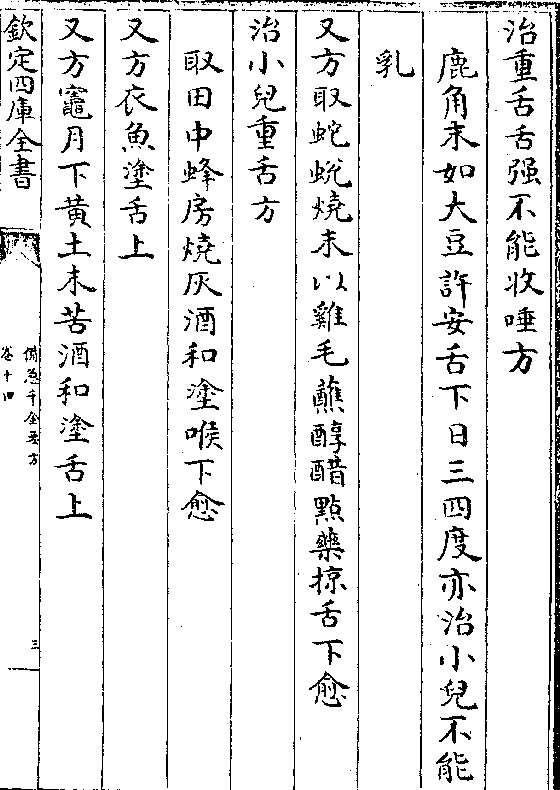 治重舌舌强不能收唾方
鹿角末如大豆許安舌下日三四度亦治小兒不能
乳
又方取蛇蛻燒末以雞毛蘸醇醋點藥掠舌下愈
治小兒重舌方
取田中蜂房燒灰酒和塗喉下愈
又方衣魚塗舌上
又方竈月下黃土末苦酒和塗舌上
欽定四庫全書
備急千金要方
卷十四
三